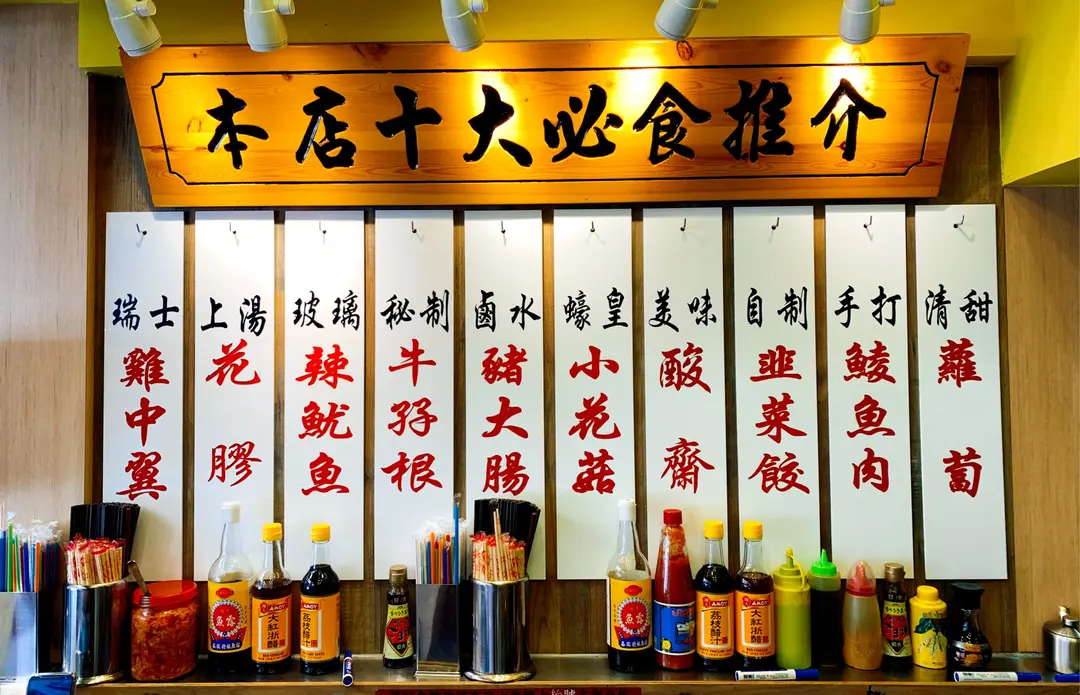 本店十大必食推介
瑞士
雞中翼
上湯
花膠
玻璃
辣魷魚
秘制
牛孖根
鹵水
豬大腸
蠔皇
小花菇
美味
酸齋
自制
韭菜餃
手打
鯪魚肉
清甜
蘿蔔
魚露
AMOY
大紅浙醋
AMOY
荔枝醋汁
魚露
AMOY
荔枝醋汁
AMOY
大紅浙醋